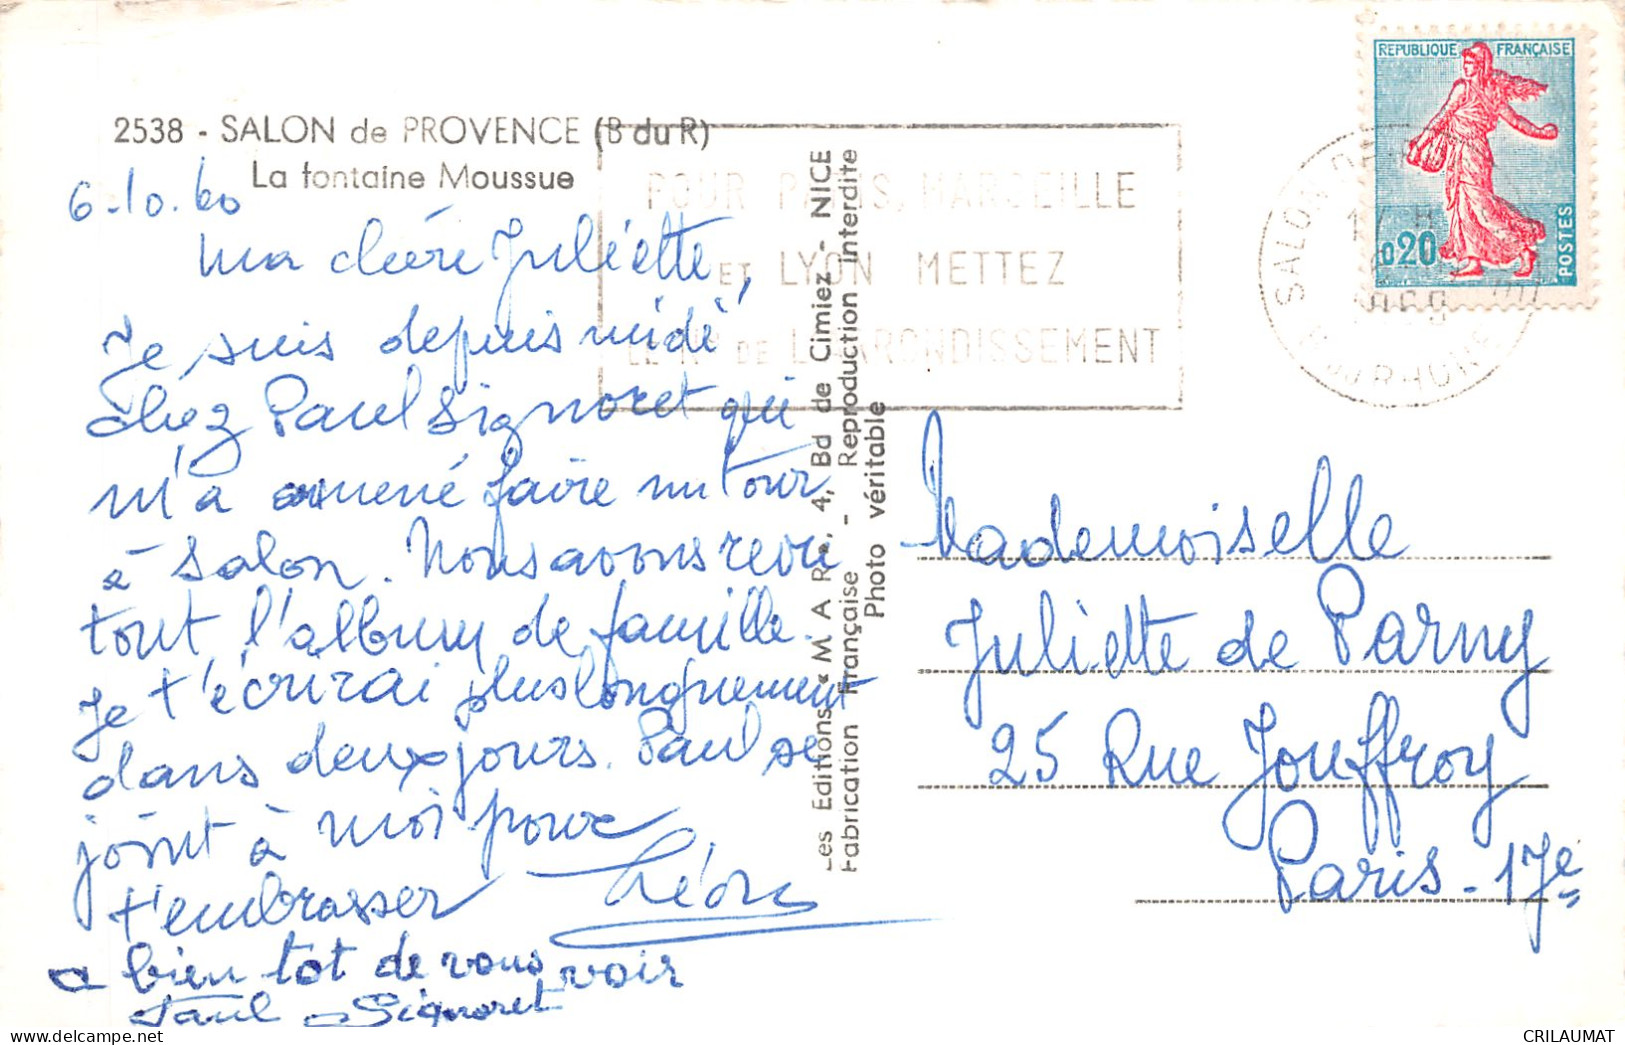 2538 - SALON de PROVENCE (B du R)
La fontaine Moussue
6-10.60
Ma chère Juliette,
Je suis depuis midi
chez Paul Signoret qui
m'a amené faire un tour
à Salon. Nous avons revu
tout l'album de famille.
Je t'écrirai plus longuement
dans deux jours. Paul se
joint à moi pour
t'embrasser Léon
a bien tot de vous voir
Paul Signoret
Les Editions « M A R », 4, Bd de Cimiez - NICE
Fabrication Française - Reproduction interdite
Photo véritable
POUR PARIS, MARSEILLE
ET LYON METTEZ
LE N° DE L'ARRONDISSEMENT
SALON DE
RHONE
REPUBLIQUE FRANÇAISE
0,20
POSTES
Mademoiselle
Juliette de Parny
25 Rue Jouffroy
Paris - 17e
CRILAUMAT